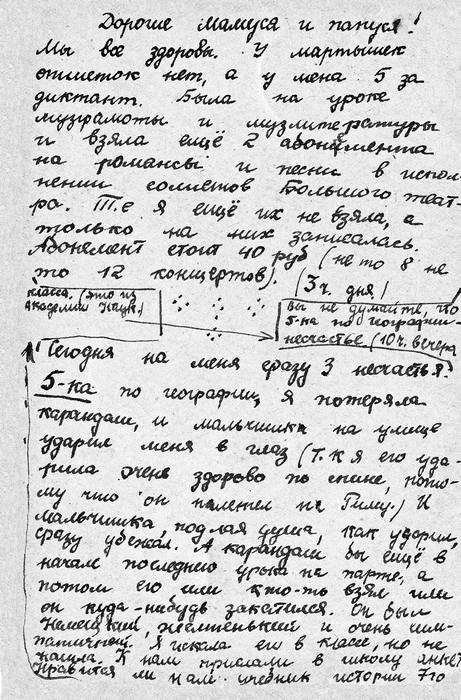 Дорогие Мамуся и папуся!
Мы все здоровы. У мартышек
отметок нет, а у меня 5 за
диктант. Была на уроке
музграмоты и музлитературы
и взяла ещё 2 абонемента
на романсы и песни в испол-
нении солистов Большого теат-
ра. Т.е я ещё их не взяла, а
только на них записалась.
Абонемент стоит 40 руб (не то 8 не
то 12 концертов). (3 ч. дня!
класса. (это из
Академии Наук.)
вы не думайте, что
5-ка по географии-
несчастье (10 ч. вечера
Сегодня на меня сразу 3 несчастья:
5-ка по географии, я потеряла
карандаш, и мальчишка на улице
ударил меня в глаз (т.к я его уда-
рила очень здорово по спине, пото-
му что он налетел на Гиту.) И
мальчишка, подлая душа, как ударил,
сразу убежал. А карандаш был ещё в
начале последнего урока на парте, а
потом его или кто-то взял или
он куда-нибудь закатился. Он был
немецкий, желтенький и очень сим-
патичный. Я искала его в классе, но не
нашла. К нам прислали в школу анкет
Нравится ли нам учебник истории 7го